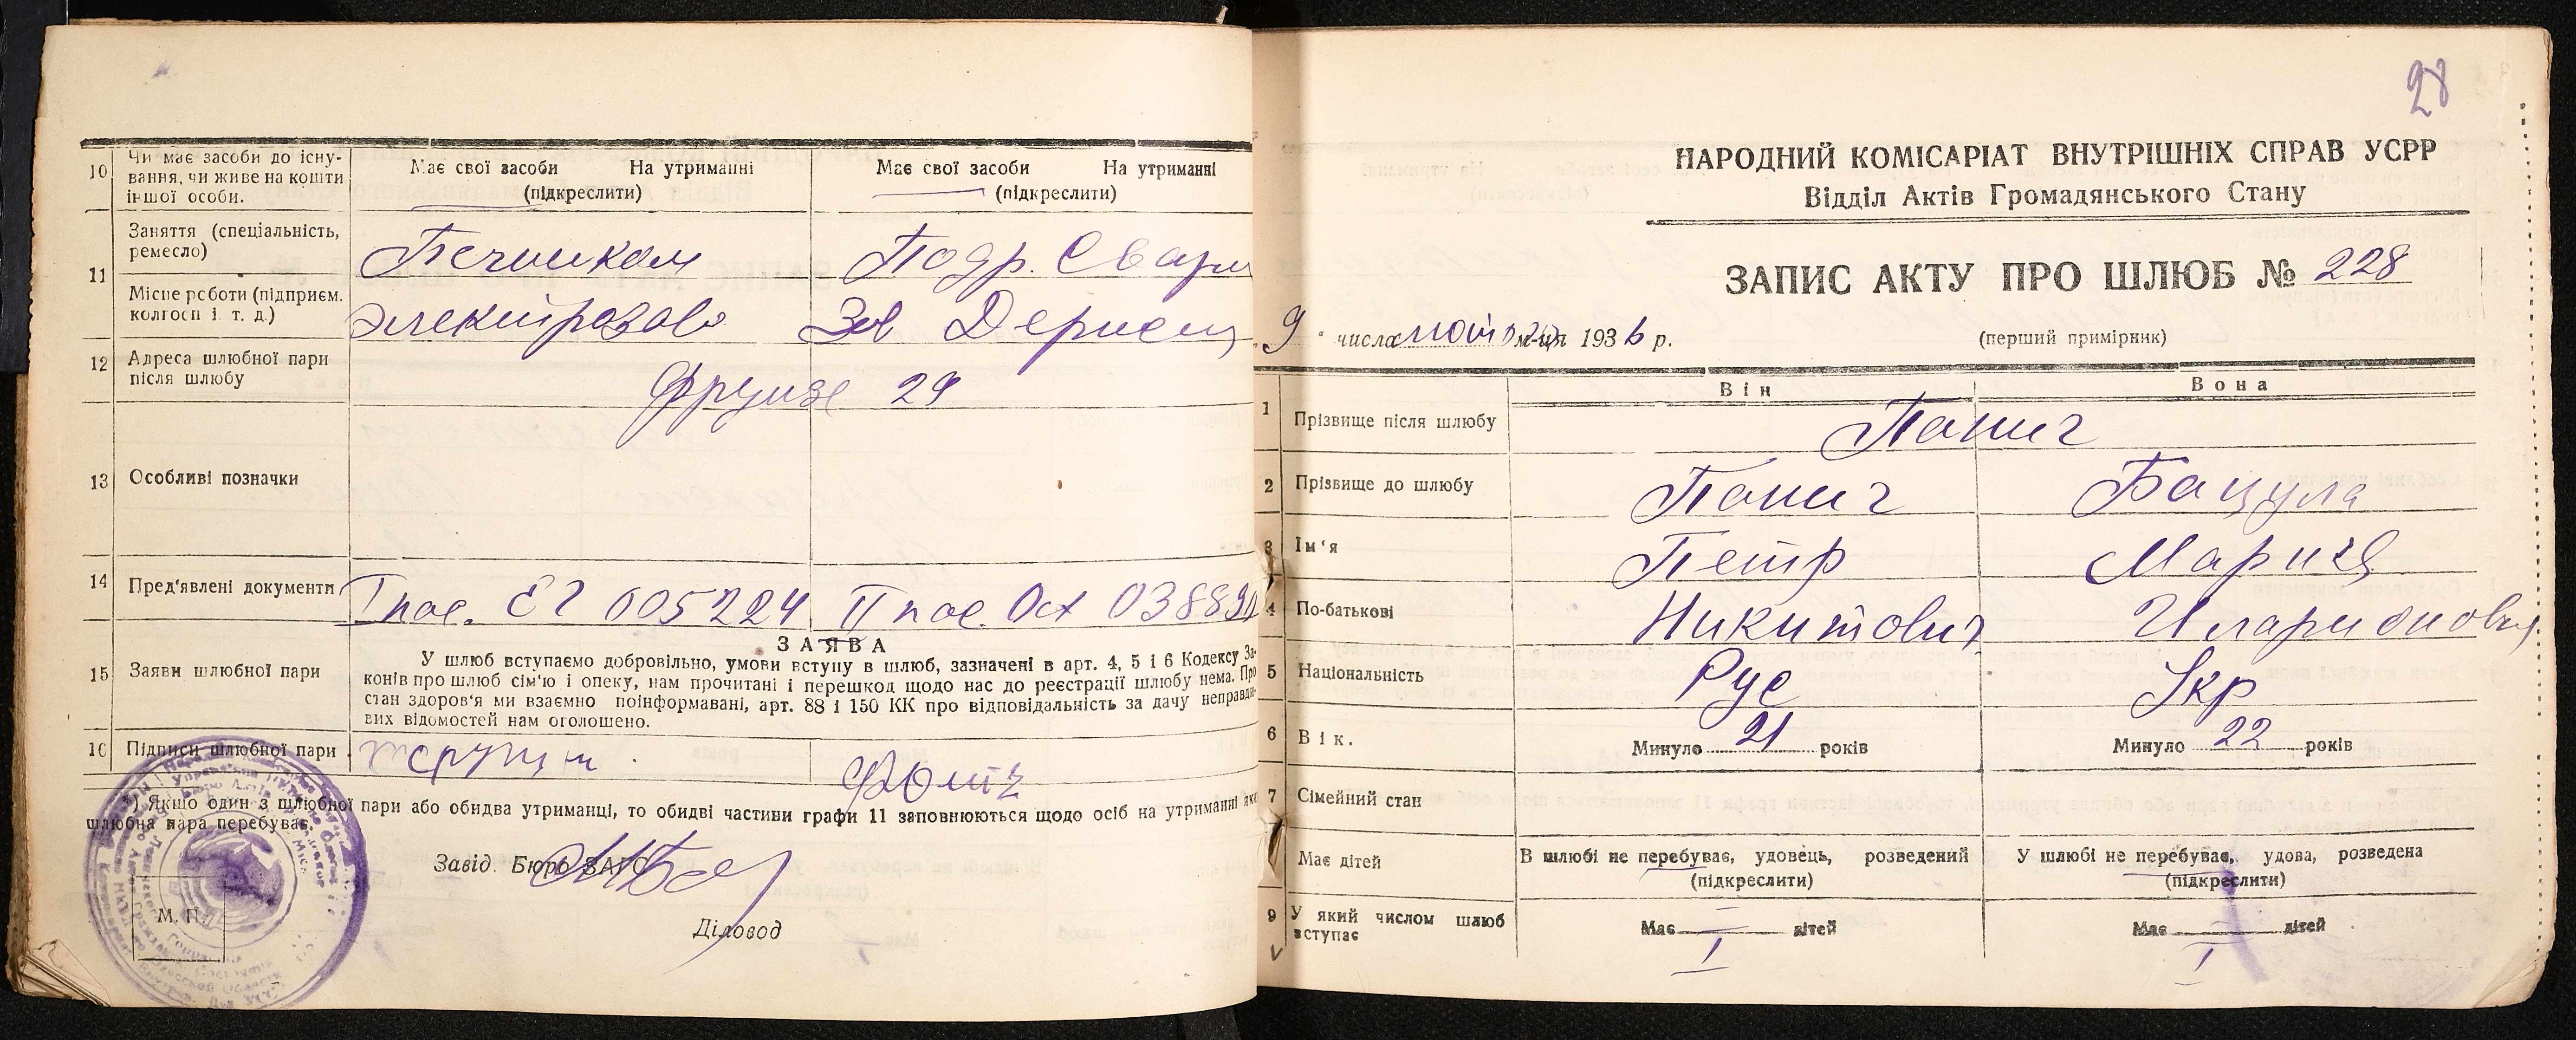 10 Чи має засоби до існу-
вання, чи живе на кошти
іншої особи.
Має свої засоби На утриманні
(підкреслити)
Має свої засоби На утриманні
(підкреслити)
11 Заняття (спеціальність,
ремесло)
Печником
Подр. Свари
Місце роботи (підприєм.
колгосп і т. д.)
12 Адреса шлюбної пари
після шлюбу
Фрунзе 29
13 Особливі позначки
14 Пред'явлені документи
I пас. ЕГ 005224 II пас.
15 Заяви шлюбної пари
ЗАЯВА
У шлюб вступаємо добровільно, умови вступу в шлюб, зазначені в арт. 4, 5 і 6 Кодексу За-
конів про шлюб сім'ю і опеку, нам прочитані і перешкод щодо нас до реєстрації шлюбу нема. Про
стан здоров'я ми взаємно поінформавані, арт. 88 і 150 КК про відповідальність за дачу неправди-
вих відомостей нам оголошено.
16 Підписи шлюбної пари
) Якщо один з шлюбної пари або обидва утриманці, то обидві частини графи 11 заповнюються щодо осіб на утриманні яких
шлюбна пара перебуває.
Завід. Бюро ЗАГС
Діловод
М. П.
28
НАРОДНИЙ КОМІСАРІАТ ВНУТРІШНІХ СПРАВ УСРР
Відділ Актів Громадянського Стану
ЗАПИС АКТУ ПРО ШЛЮБ № 228
9 числа м-ця 1936 р.
(перший примірник)
Він Вона
1 Прізвище після шлюбу
Панич
2 Прізвище до шлюбу
Панич
Бацула
3 Ім'я
Петр
Мария
4 По-батькові
Никитович
Иларионовн
5 Національність
Рус
Укр
6 Вік.
Минуло 21 років
Минуло 22 років
7 Сімейний стан
Має дітей
В шлюбі не перебував, удовець, розведений
(підкреслити)
У шлюбі не перебував, удова, розведена
(підкреслити)
9 У який числом шлюб
вступає
Має — дітей
I
Має — дітей
I